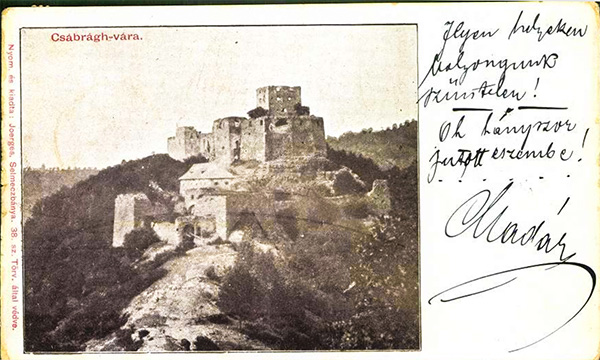 Csábrágh-vára.
Ilyen helyeken
bolyongunk
szüntelen!
Oh hányszor
jutott eszembe!
Madár
Nyom. és kiadta: Joerges, Selmeczbánya. 38. sz. Törv. által védve.